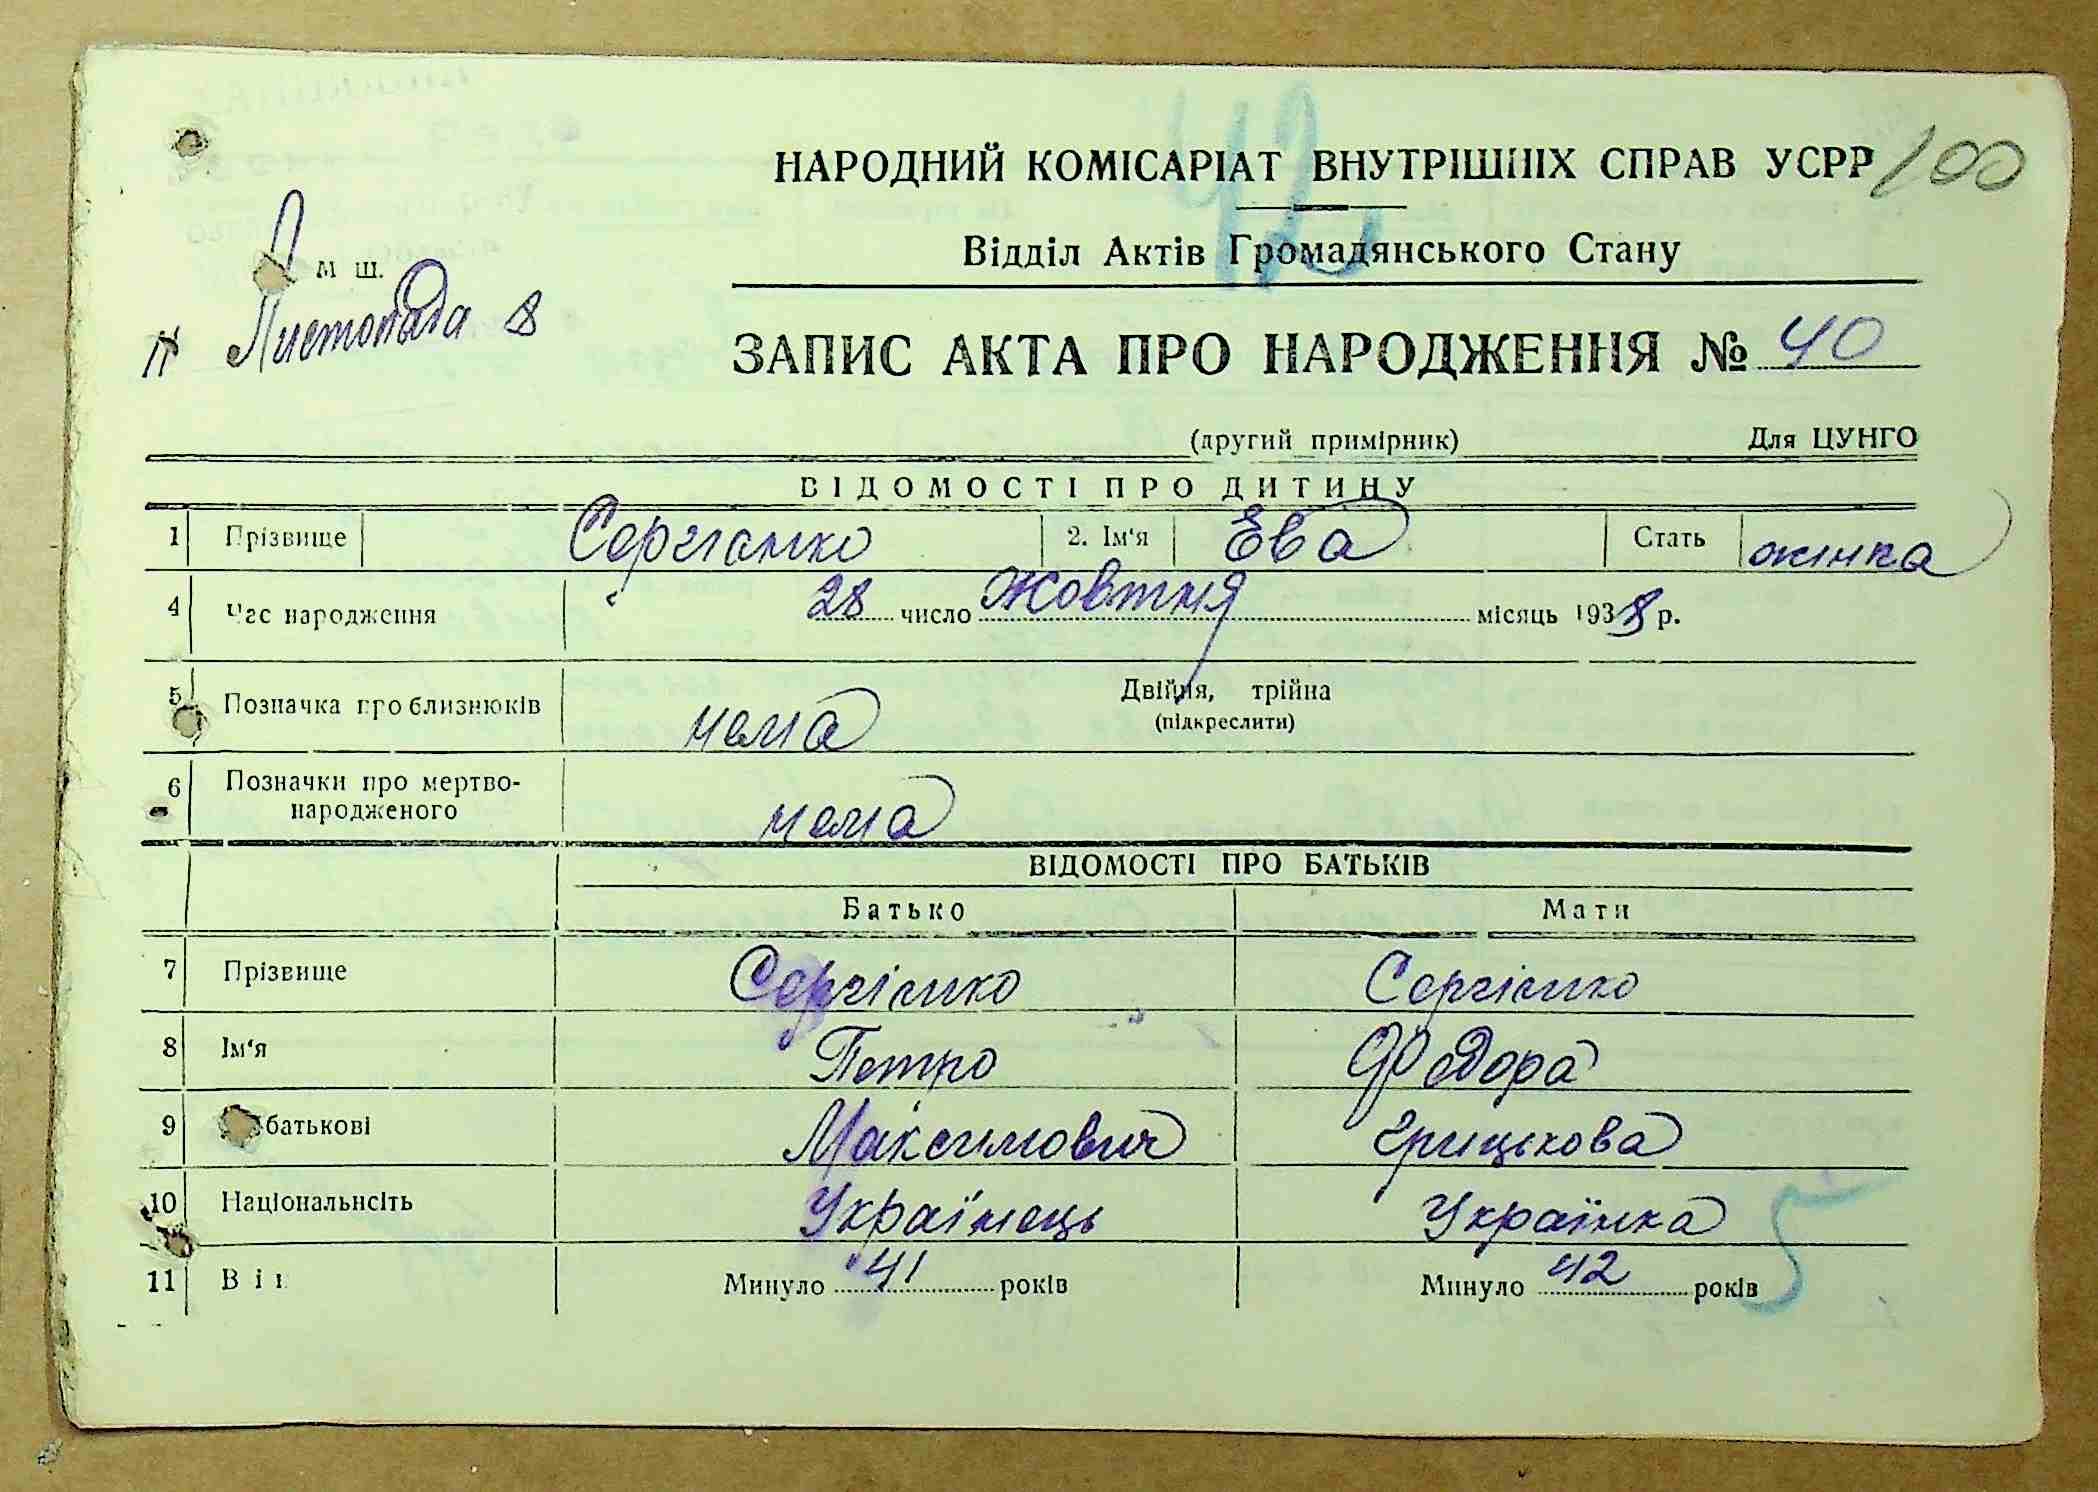 42
НАРОДНИЙ КОМІСАРІАТ ВНУТРІШНІХ СПРАВ УСРР 100
Відділ Актів Громадянського Стану
м ш.
Листопада 8
ЗАПИС АКТА ПРО НАРОДЖЕННЯ № 40
(другий примірник) Для ЦУНГО
ВІДОМОСТІ ПРО ДИТИНУ
1 Прізвище Сергієнко 2. Ім'я Ева Стать жінка
4 Час народження 28 число Жовтня місяць 1938 р.
5 Позначка про близнюків нема Двійня, трійна
(підкреслити)
6 Позначки про мертво-
народженого нема
ВІДОМОСТІ ПРО БАТЬКІВ
Батько Мати
7 Прізвище Сергієнко Сергієнко
8 Ім'я Петро Федора
9 батькові Максимович Грицькова
10 Національнсіть Українець Українка
11 Вік Минуло 41 років Минуло 42 років
5